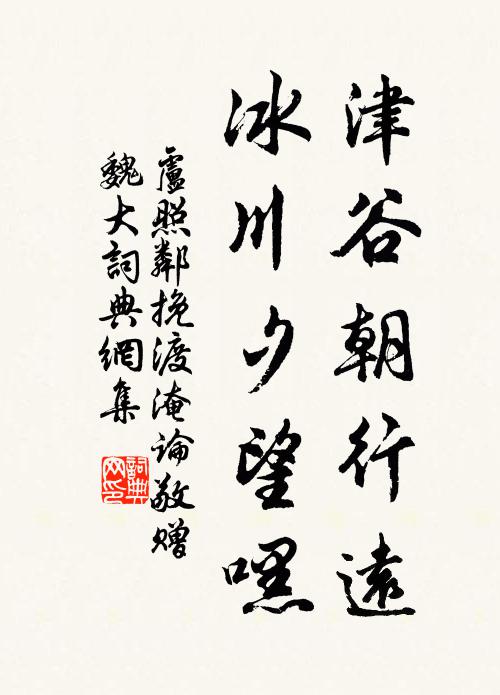 津谷朝行遠
冰川夕望嘿
盧照鄰挽渡淹論敬贈
魏大詞典網集
詞典
网印